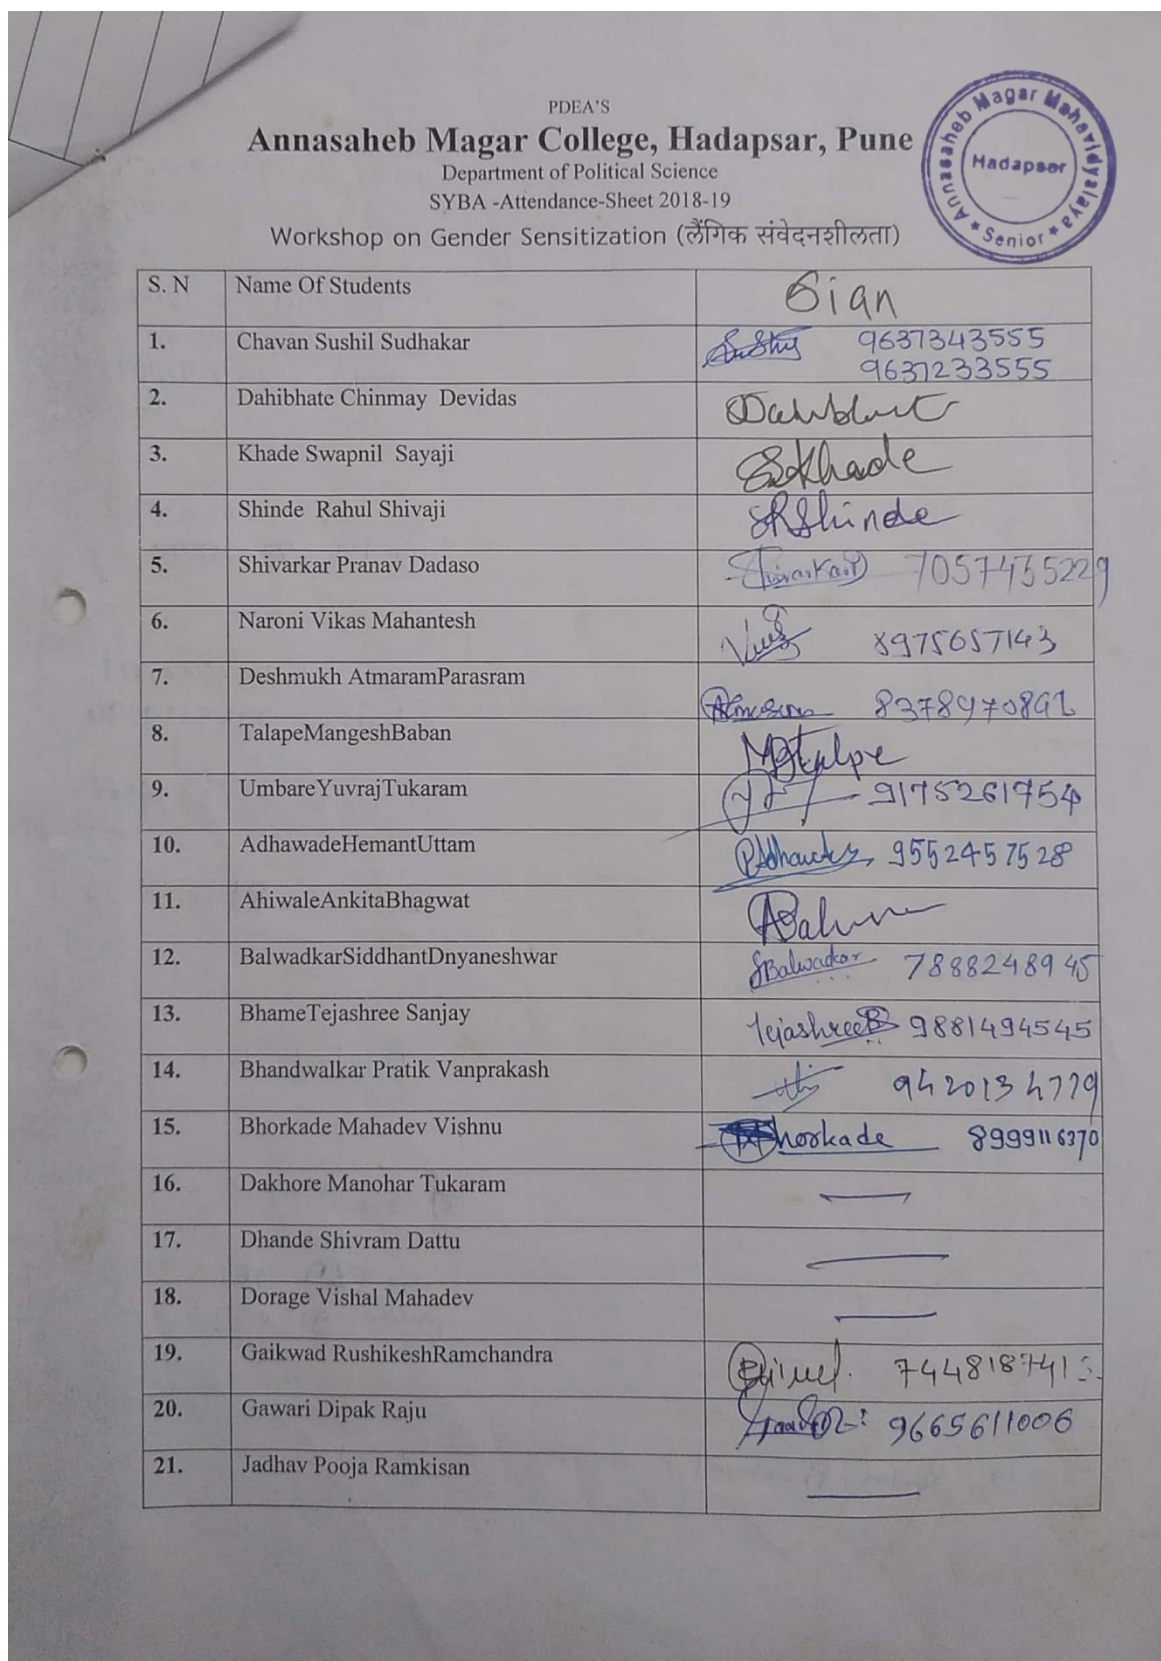 PDEA'S
Annasaheb Magar College, Hadapsar, Pune
Department of Political Science
SYBA -Attendance-Sheet 2018-19
Workshop on Gender Sensitization (लैंगिक संवेदनशीलता)
Annasaheb Magar Mahavidyalaya
Hadapsar
★ Senior ★
S. N Name Of Students Sian
1. Chavan Sushil Sudhakar 9637343555
9637233555
2. Dahibhate Chinmay Devidas
3. Khade Swapnil Sayaji SKhade
4. Shinde Rahul Shivaji RShinde
5. Shivarkar Pranav Dadaso 7057455229
6. Naroni Vikas Mahantesh 8975657143
7. Deshmukh AtmaramParasram
8. TalapeMangeshBaban
9. UmbareYuvrajTukaram 9175261754
10. AdhawadeHemantUttam 9552457528
11. AhiwaleAnkitaBhagwat
12. BalwadkarSiddhantDnyaneshwar SBalwadkar 7888248945
13. BhameTejashree Sanjay TejashreeB 9881494545
14. Bhandwalkar Pratik Vanprakash 9420134779
15. Bhorkade Mahadev Vishnu Bhorkade 8999116370
16. Dakhore Manohar Tukaram —
17. Dhande Shivram Dattu —
18. Dorage Vishal Mahadev —
19. Gaikwad RushikeshRamchandra
20. Gawari Dipak Raju 9665611006
21. Jadhav Pooja Ramkisan —